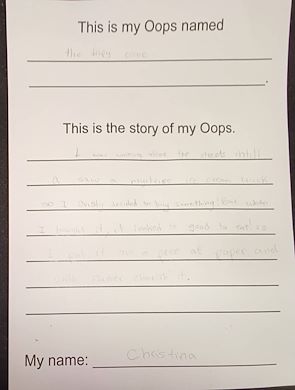 This is my Oops named
the
.
This is the story of my Oops.
I was walking down the streets untill
I saw a mysterious ice cream truck
so I decided to buy something. But when
I bought it, it looked so good to eat! so
I put it on a piece of paper and
cherish it.
My name: Christina